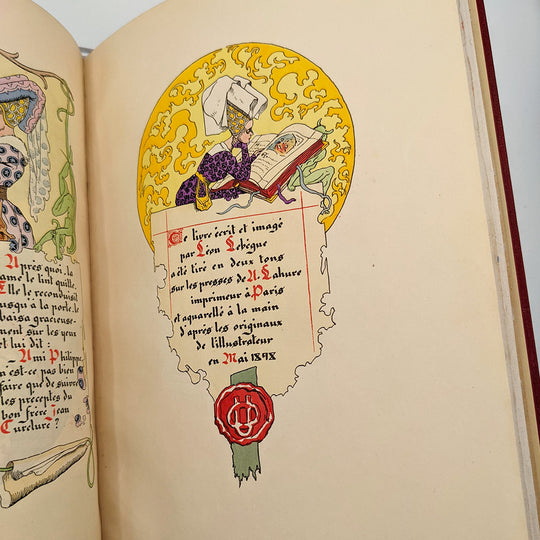 Après quoi, la
ame le tint quille,
Elle le reconduisit
usqu'à la porte, le
baisa gracieuse-
ment sur les yeux
et lui dit :
— Ami Philippe,
n'est-ce pas bien
faire que de suivre
les preceptes du
bon frère Jean
Turelure ?
Ce livre écrit et imagé
par Léon Lebègue
a été tiré en deux tons
sur les presses de A. Lahure
imprimeur à Paris
et aquarellé à la main
d'après les originaux
de l'illustrateur
en Mai 1898